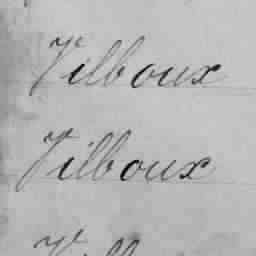 Vilboux
Vilboux